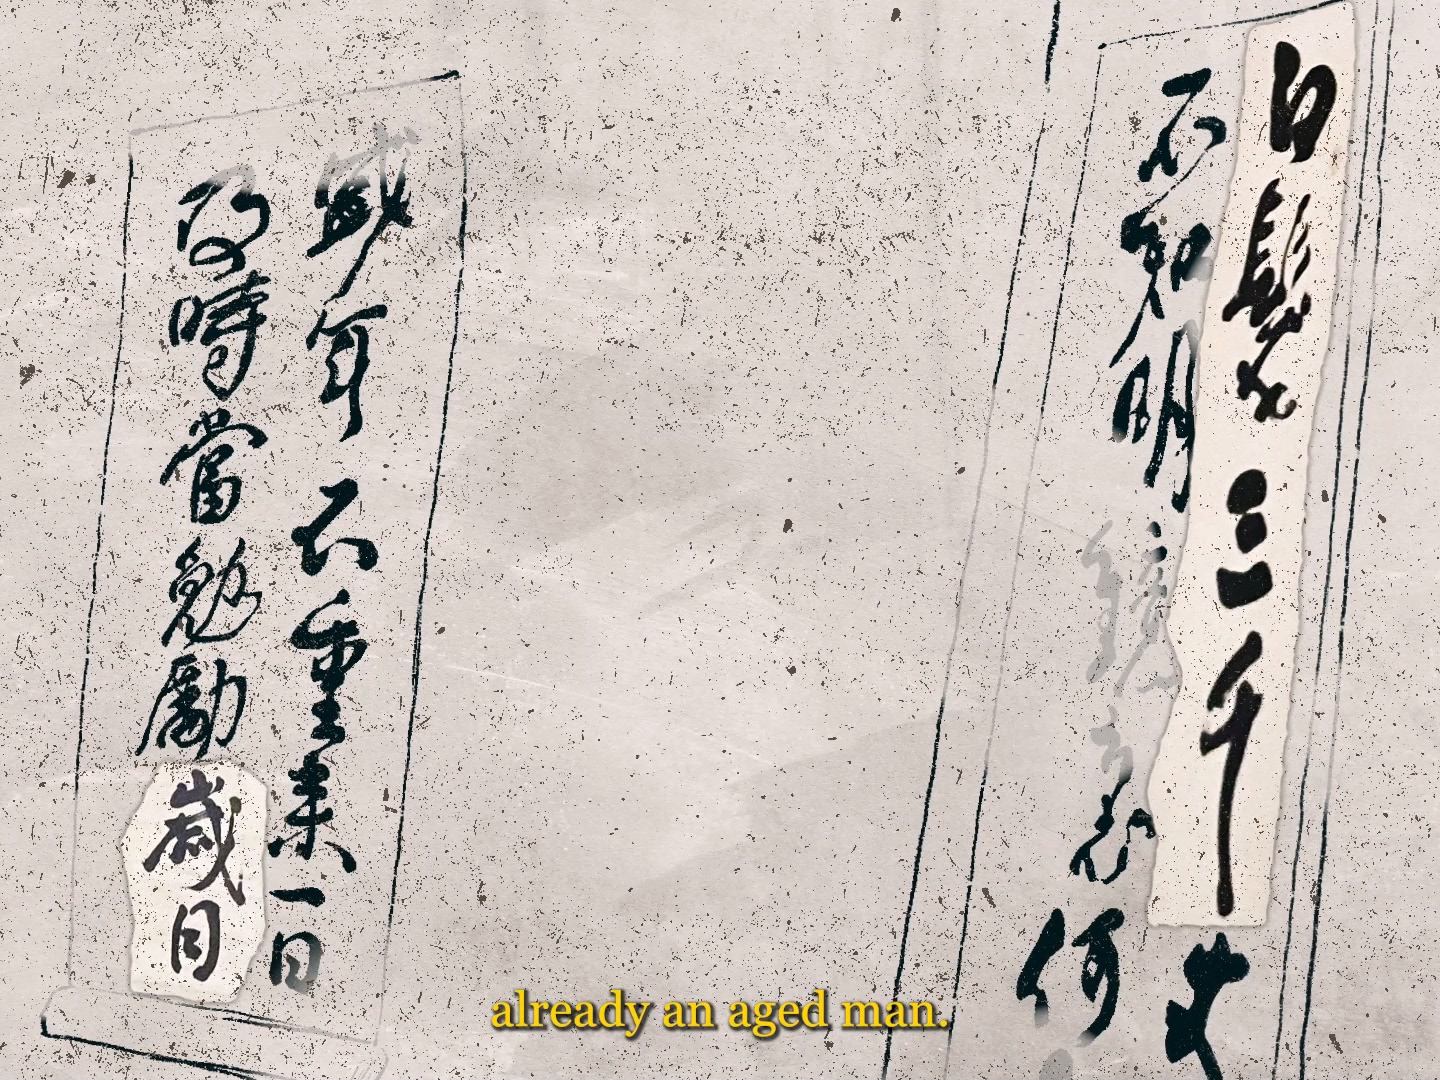 白髮三千丈
不知明鏡裏何
盛年不重來一日
及時當勉勵歲月
already an aged man.